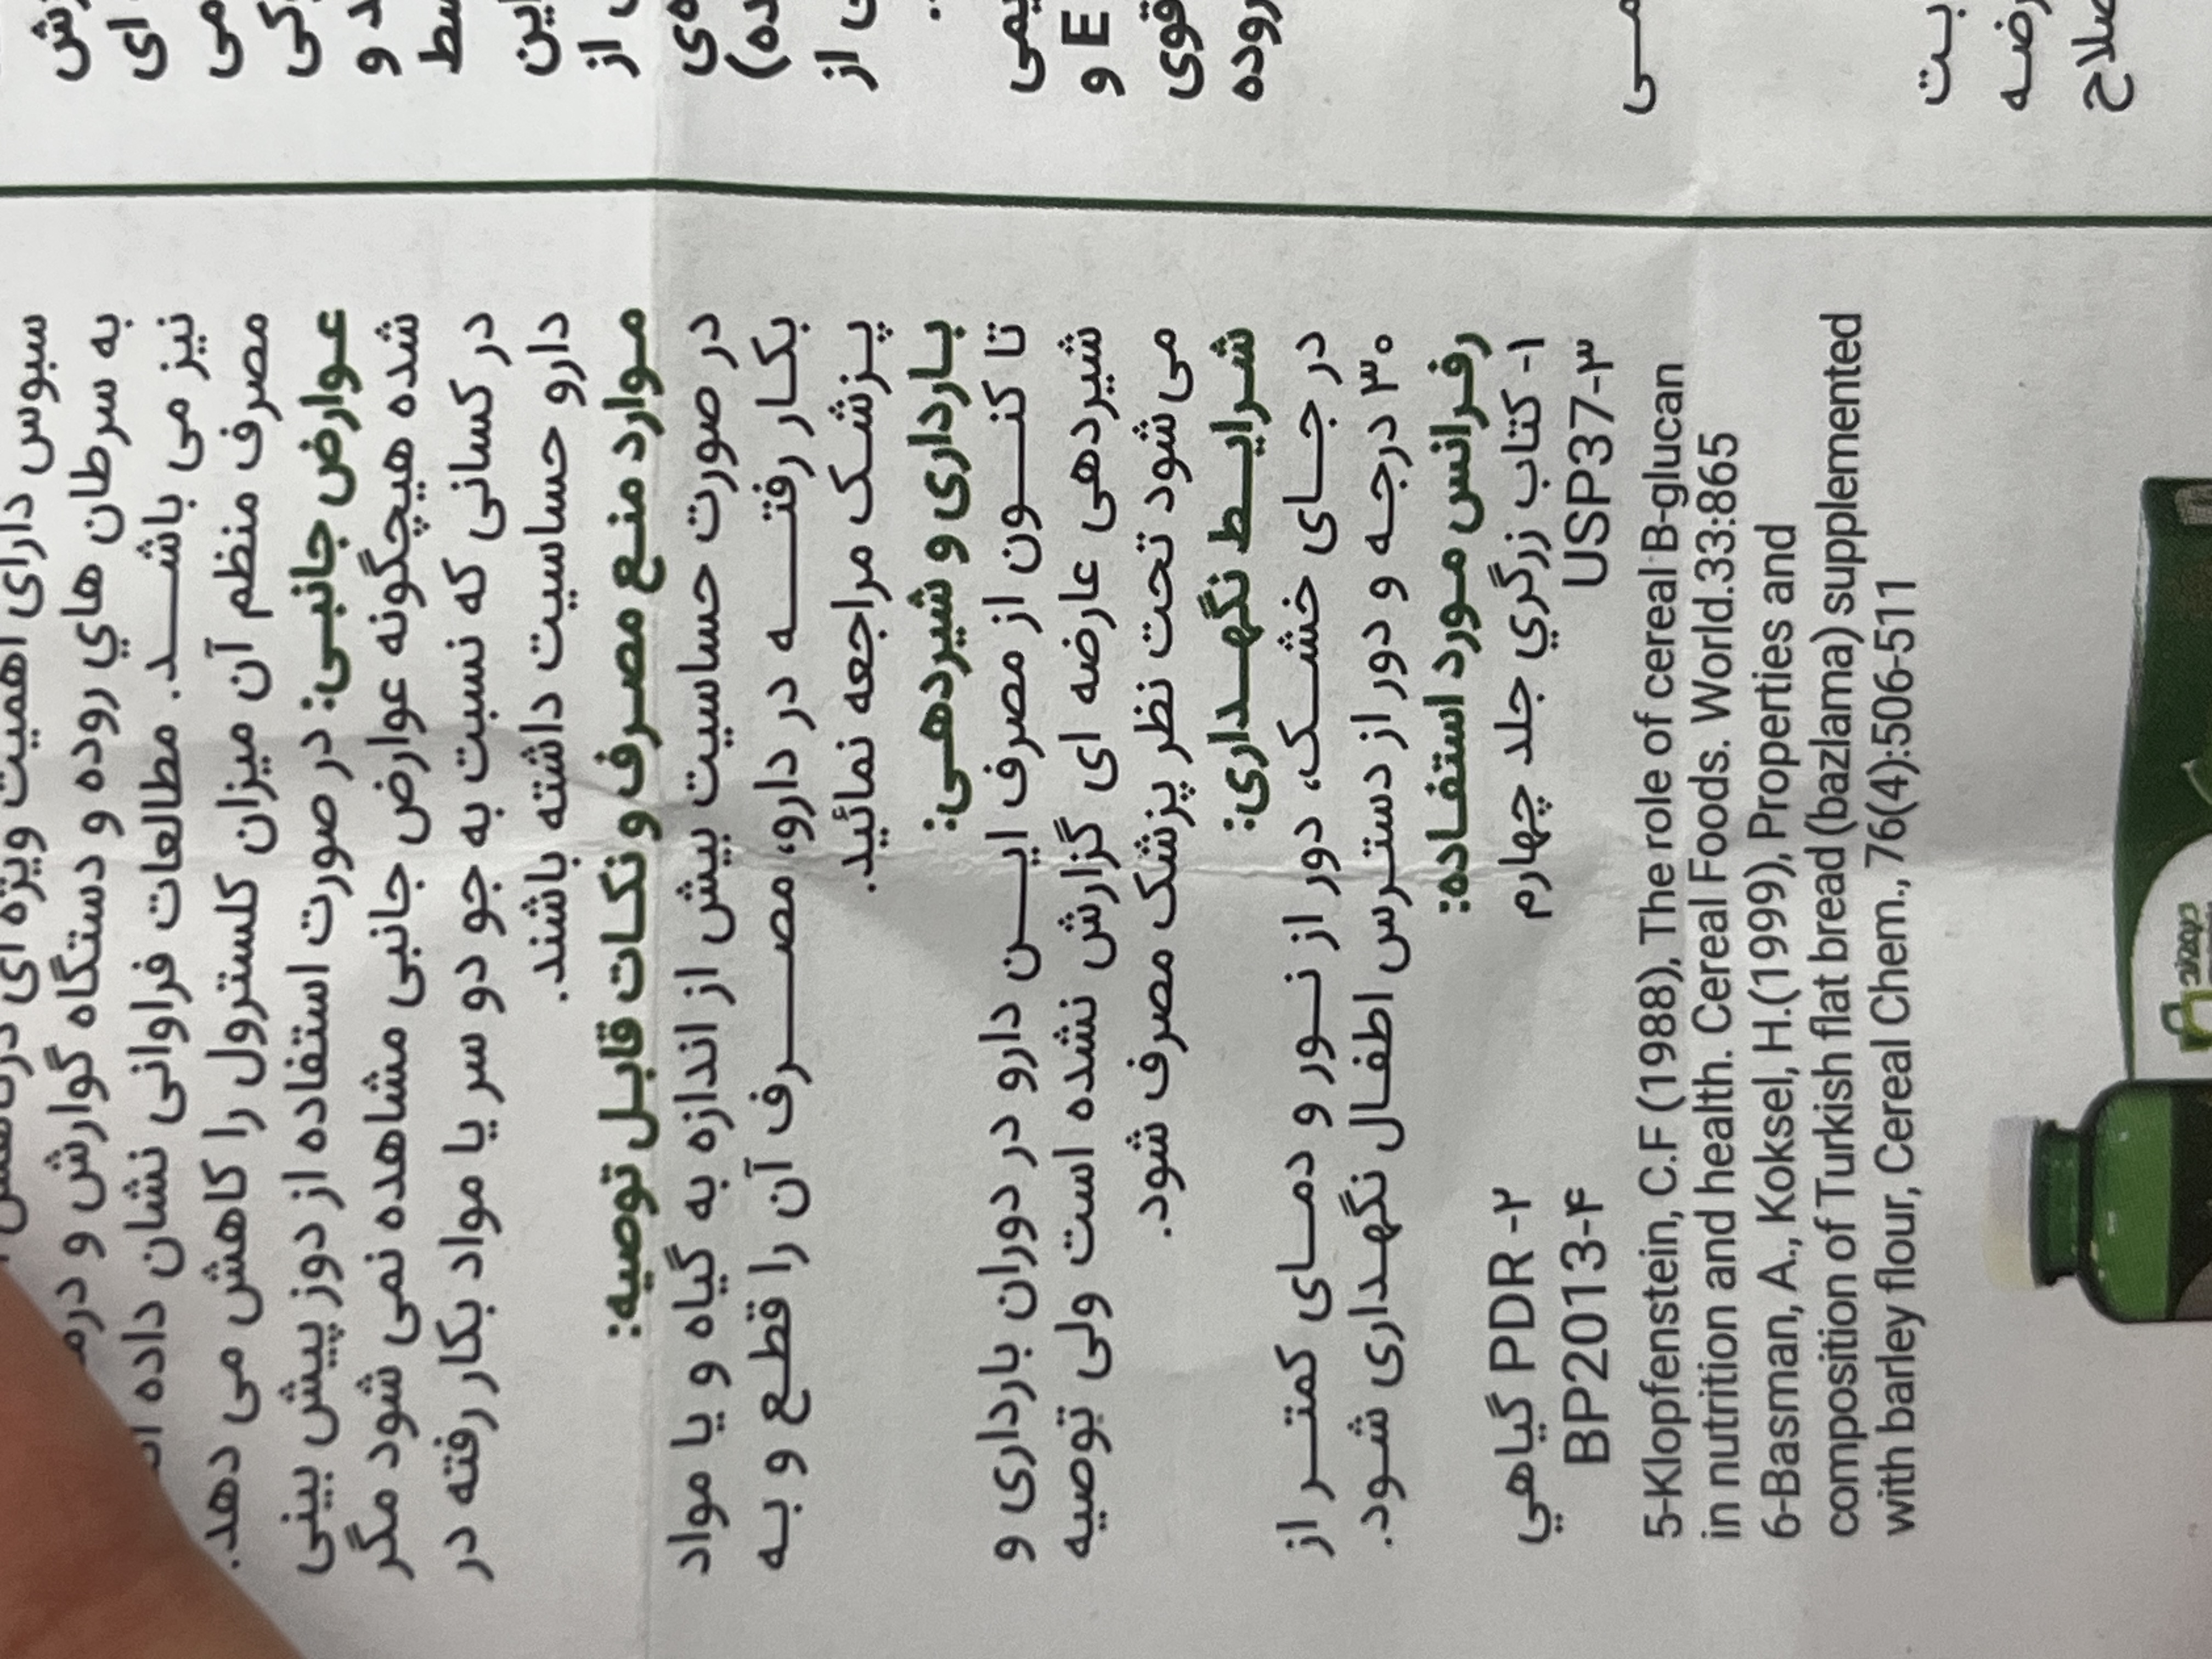 سبوس دارای اهمیت ویژه ای
به سرطان هاي روده و دستگاه گوارش و
نیز می باشد. مطالعات فراوانی نشان داده
مصرف منظم آن میزان کلسترول را کاهش می دهد.
عوارض جانبی: در صورت استفاده از دوز پیش بینی
شده هیچگونه عوارض جانبی مشاهده نمی شود مگر
در کسانی که نسبت به جو دو سر یا مواد بکار رفته در
دارو حساسیت داشته باشند.
موارد منع مصرف و نکات قابل توصیه:
در صورت حساسیت بیش از اندازه به گیاه و یا مواد
بکار رفته در دارو، مصرف آن را قطع و به
پزشک مراجعه نمائید.
بارداری و شیردهی:
تا کنون از مصرف این دارو در دوران بارداری و
شیردهی عارضه ای گزارش نشده است ولی توصیه
می‌شود تحت نظر پزشک مصرف شود.
شرایط نگهداری:
در جای خشک، دور از نور و دمای کمتر از
۳۰ درجه و دور از دسترس اطفال نگهداری شود.
رفرانس مورد استفاده:
۱- کتاب زرگري جلد چهارم
۲- PDR گیاهي
USP37-۳
BP2013-۴
5-Klopfenstein, C.F (1988), The role of cereal B-glucan
in nutrition and health. Cereal Foods. World.33:865
6-Basman, A., Koksel, H.(1999), Properties and
composition of Turkish flat bread (bazlama) supplemented
with barley flour, Cereal Chem., 76(4):506-511
می
و
از
از
E و
قوی
روده
می